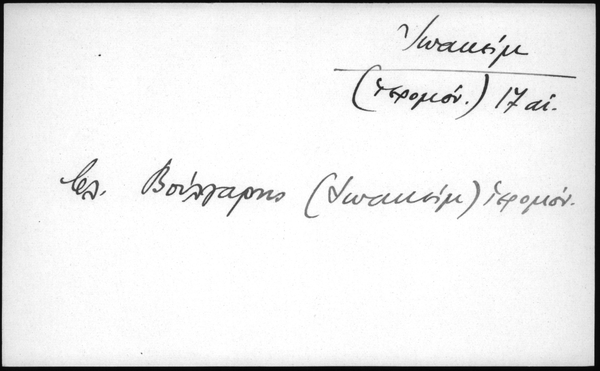 Ἰωακείμ
(ἱερομόν.) 17 αἰ.
βλ. Βούλγαρης (Ἰωακείμ) ἱερομόν.